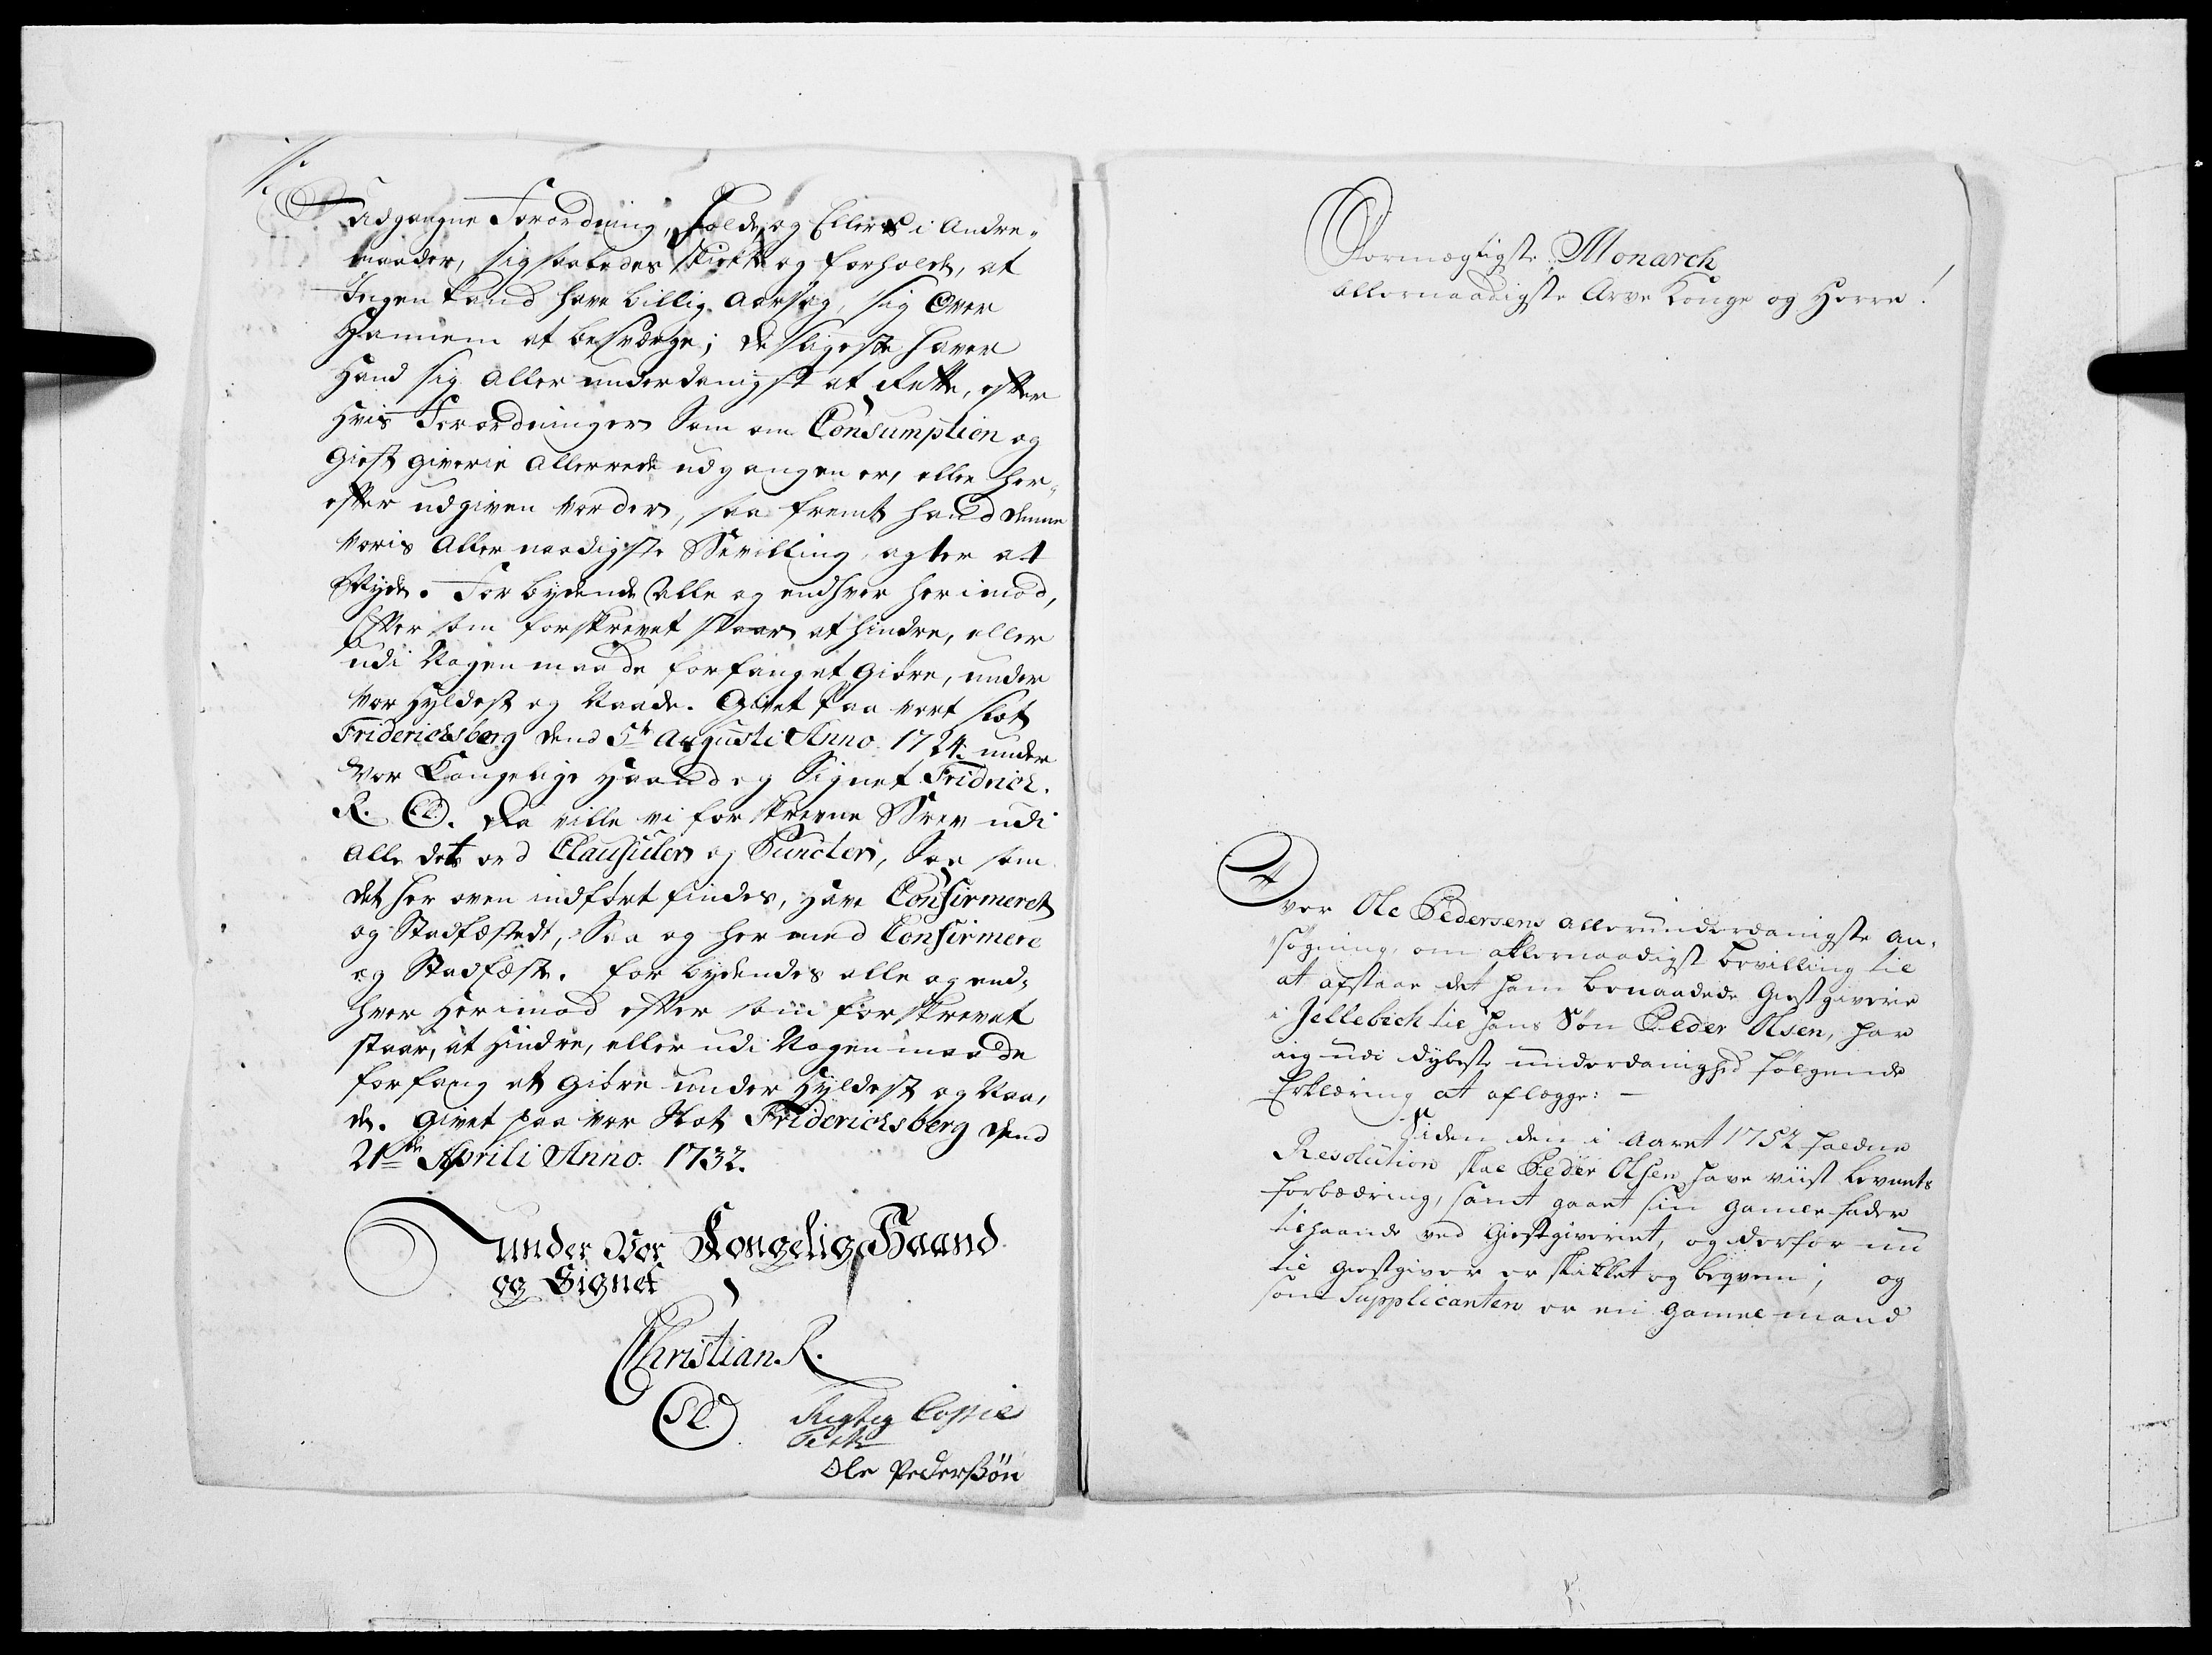 udgangne Forordning, holde, og Ellers i Andre-
maader, sig saaledes skikke og forholde, at
Ingen kand have billig Aarsag, sig over
Hannem at besværge; desligeste haver
Hand sig Aller underdanigst at rette, efter
hvis Forordninger som om Consumption og
Giest Giverie Allerrede udgangen er, eller her-
efter udgiven vorder, saa fremt hand denne
Voris Aller naadigste Bevilling agter at
Nyde. Forbydende Alle og enhver herimod,
Efter som forskrevet staar, at hindre, eller
udi Nogen maade forfanget Giöre, under
Vor Hyldest og Naade. Givet Paa vort Slot
Friderichsberg dend 5te Augusti Anno 1724. under
Vor Kongelige Haand og Signet Fridrich.
R. Da ville vi forskrevne Brev udi
Alle dets ord Clausuler og Puncter, Saa som
det her oven indfört findes, have Confirmeret
og Stadfæstedt, Saa og her med Confirmere
og Stadfæste. forbydendes alle og end-
hver Herimod efter som forskrevet
staar, at Hindre, eller udi Nogen maade
forfang at Giöre under Hyldest og Naa-
de. Givet paa vor Slot Friderichsberg dend
21de Aprili Anno. 1732.
under Vor Kongelig Haand
og Signet
Christian. R.
Rigtig Copie
Test
Ole Pederßön
Stormægtigste Monarch
allernaadigste Arve Konge og Herre!
Over Ole Pedersens allerunderdanigste an-
søgning, om allernaadigst bevilling til
at afstaae det ham benaadede Giestgiverie
i Jellebech til hans Søn Peder Olsen, har
jeg udi dybeste underdanighed følgende
Erklæring at aflægge: -
Siden den i Aaret 1752 faldne
Resolution skal Peder Olsen have viist Levnets
forbedring, samt gaaet sin gamle fader
tilhaande ved Giestgiveriet, og derfor nu
til Giestgiver er skikket og beqvem; og
som Supplicanten er en gammel mand